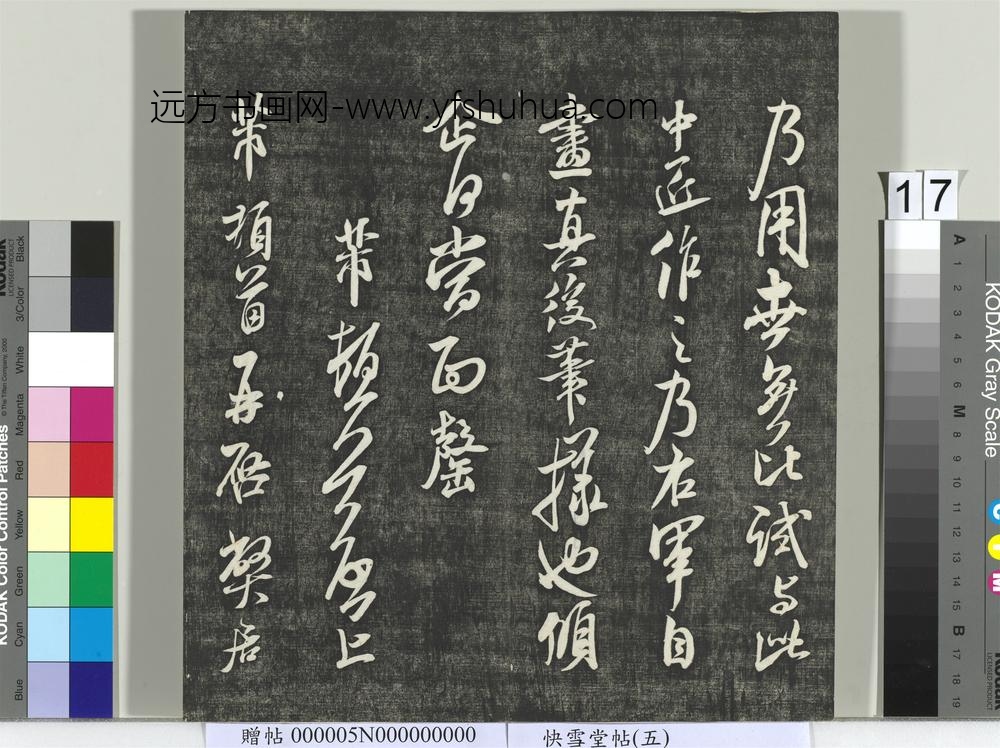 远方书画网-www.yfshuhua.com
乃用世無比試与此
中匠作之乃右軍自
畫真後筆様也傾
企日當面罄
芾頓首上
芾頓首再啓弊居
17
Kodak
LICENSED PRODUCT
KODAK Color Control Patches
© The Tiffen Company, 2000
Blue Cyan Green Yellow Red Magenta White 3/Color Black
KODAK Gray Scale
A 1 2 3 4 5 6 M 8 9 10 11 12 13 14 15 B 17 18 19
C Y M
贈帖 000005N000000000
快雪堂帖(五)